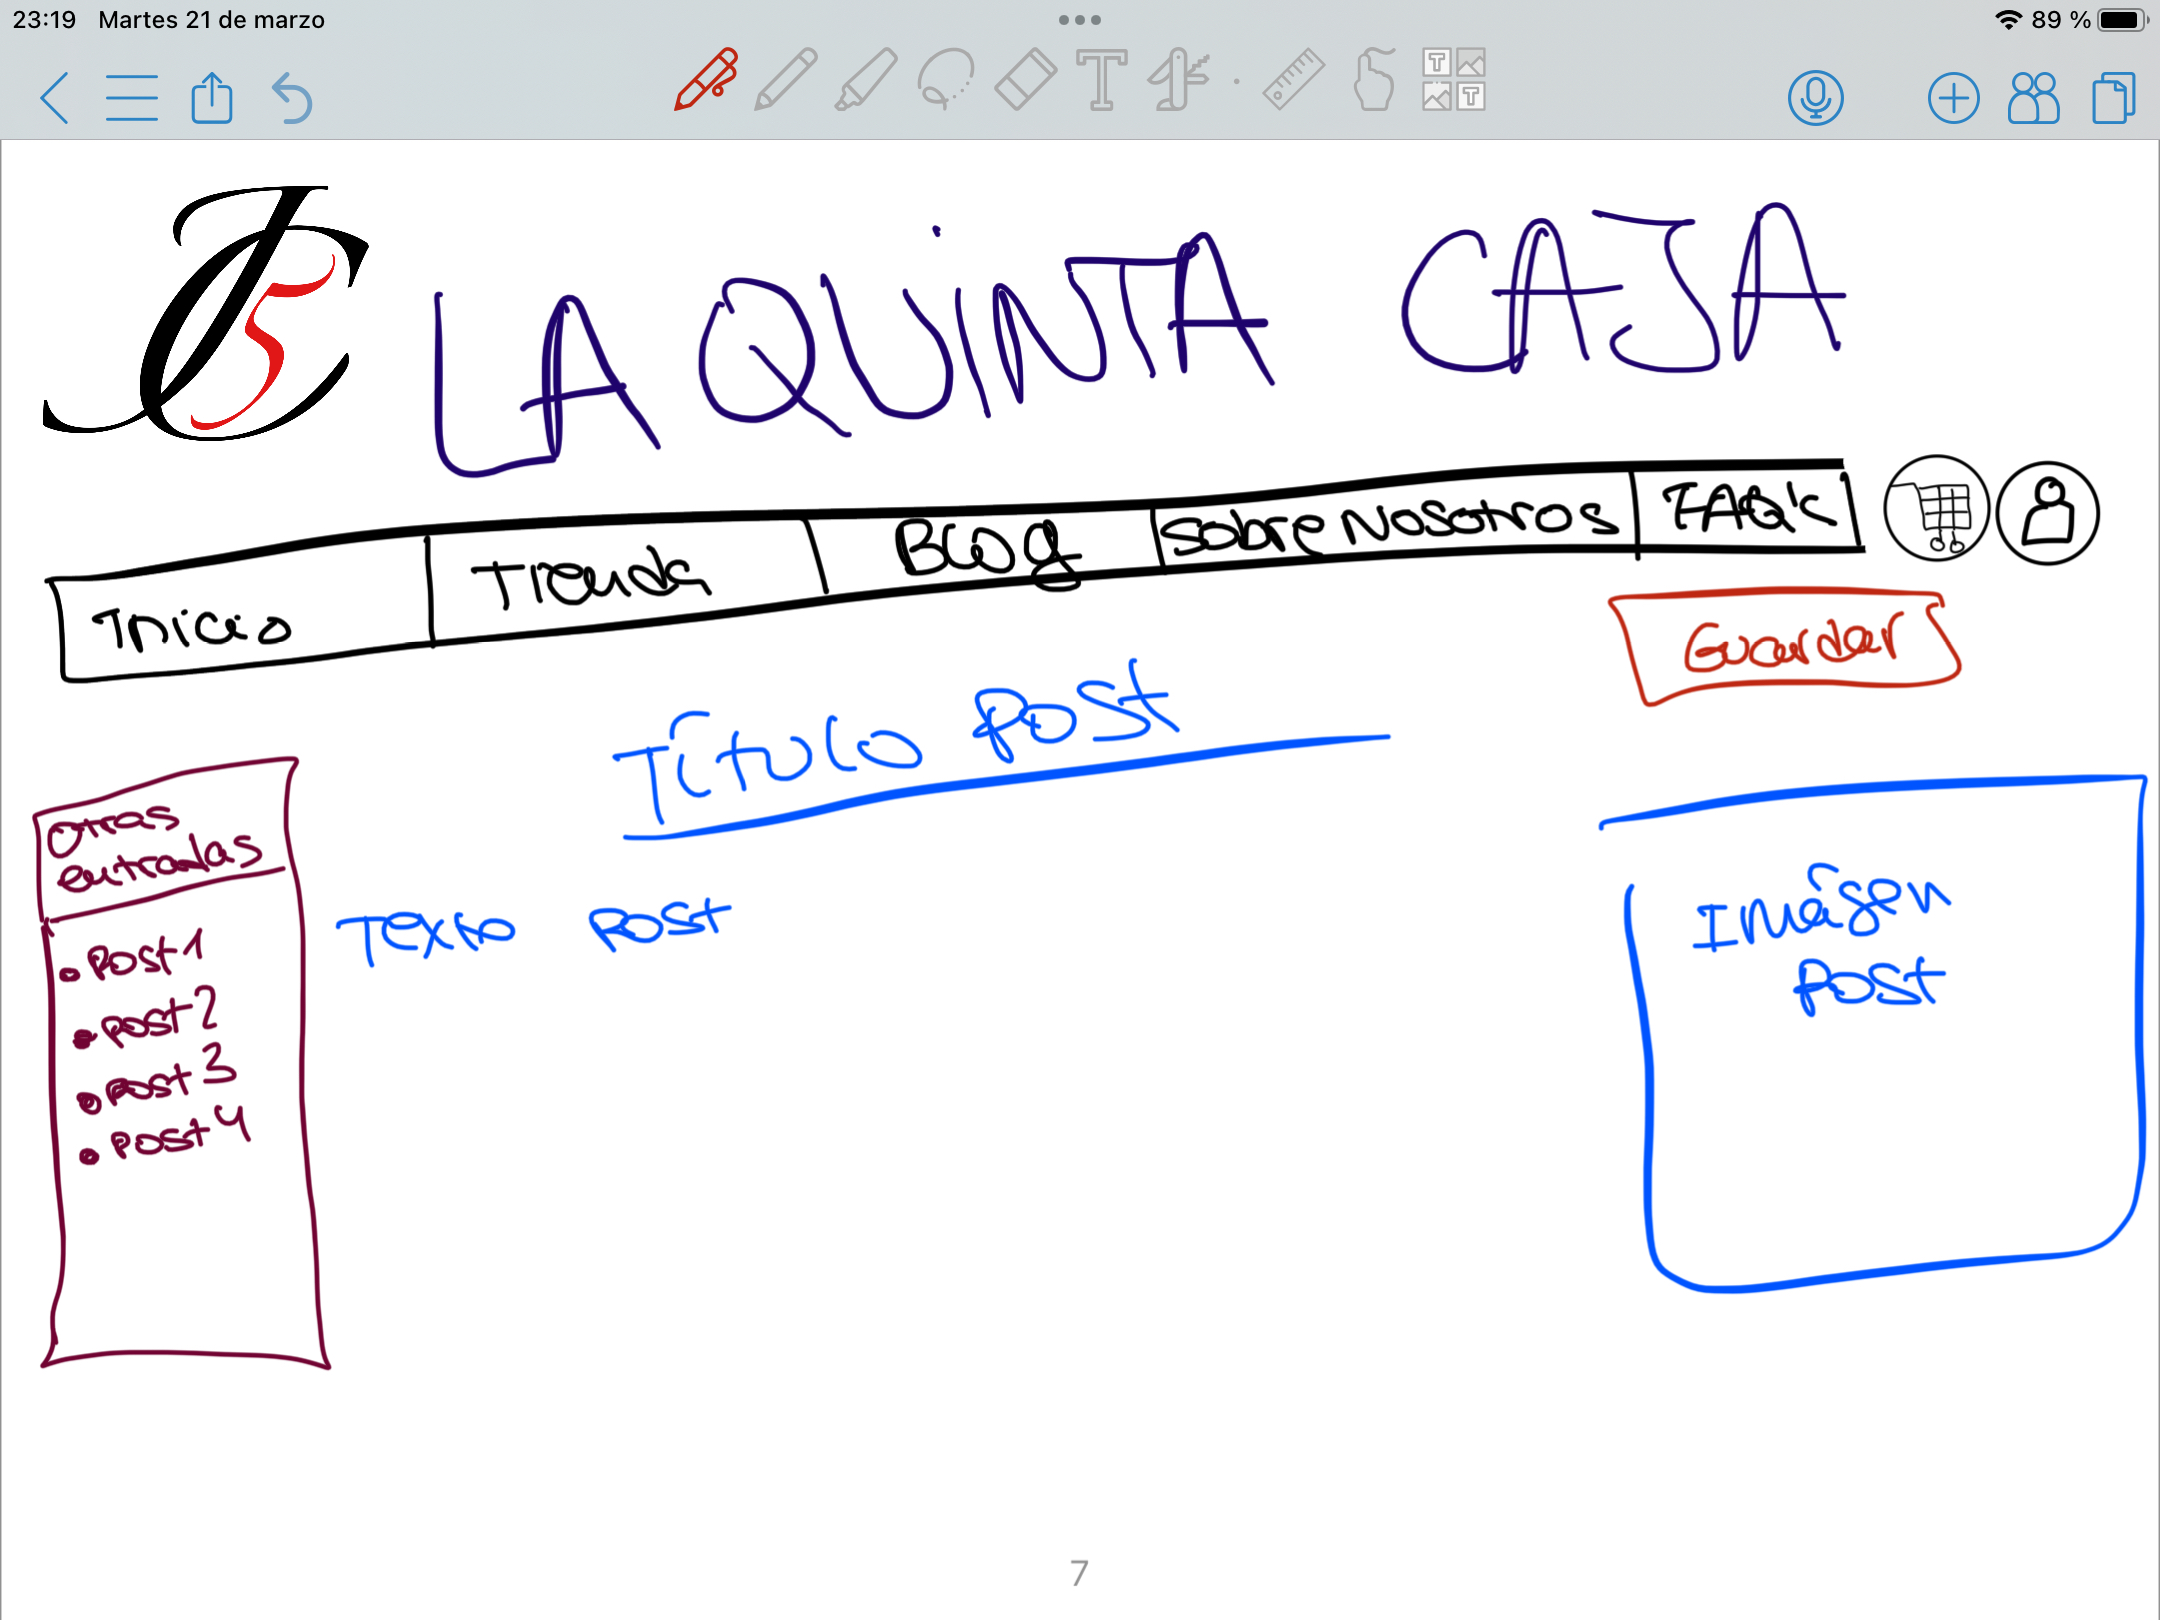 23:19 Martes 21 de marzo
89 %
LA QUINTA CAJA
Inicio
Tienda
Blog
Sobre Nosotros
FAQ's
Guardar
Título post
Otras
entradas
Post 1
Post 2
Post 3
Post 4
Texto post
Imágen
post
7